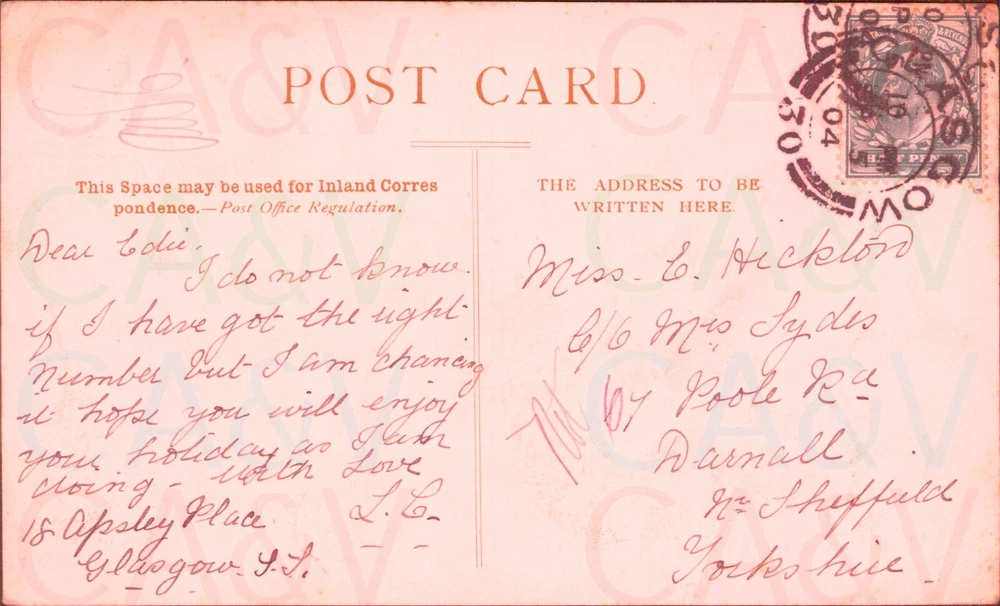 POST CARD
This Space may be used for Inland Corres
pondence.—Post Office Regulation.
Dear Edie.
I do not know.
if I have got the right
number but I am chancing
it hope you will enjoy
your holiday as I am
doing - with Love
L. C.
18 Apsley Place
Glasgow. S.S.
THE ADDRESS TO BE
WRITTEN HERE.
Miss. E. Hickford
C/O Mrs Sydes
67 Poole Rd
Darnall
Nr Sheffield
Yorkshire
GLASGOW
04
30
HALF PENNY
CA&V
CA&V
CA&V
CA&V
CA&V
CA&V
CA&V
CA&V